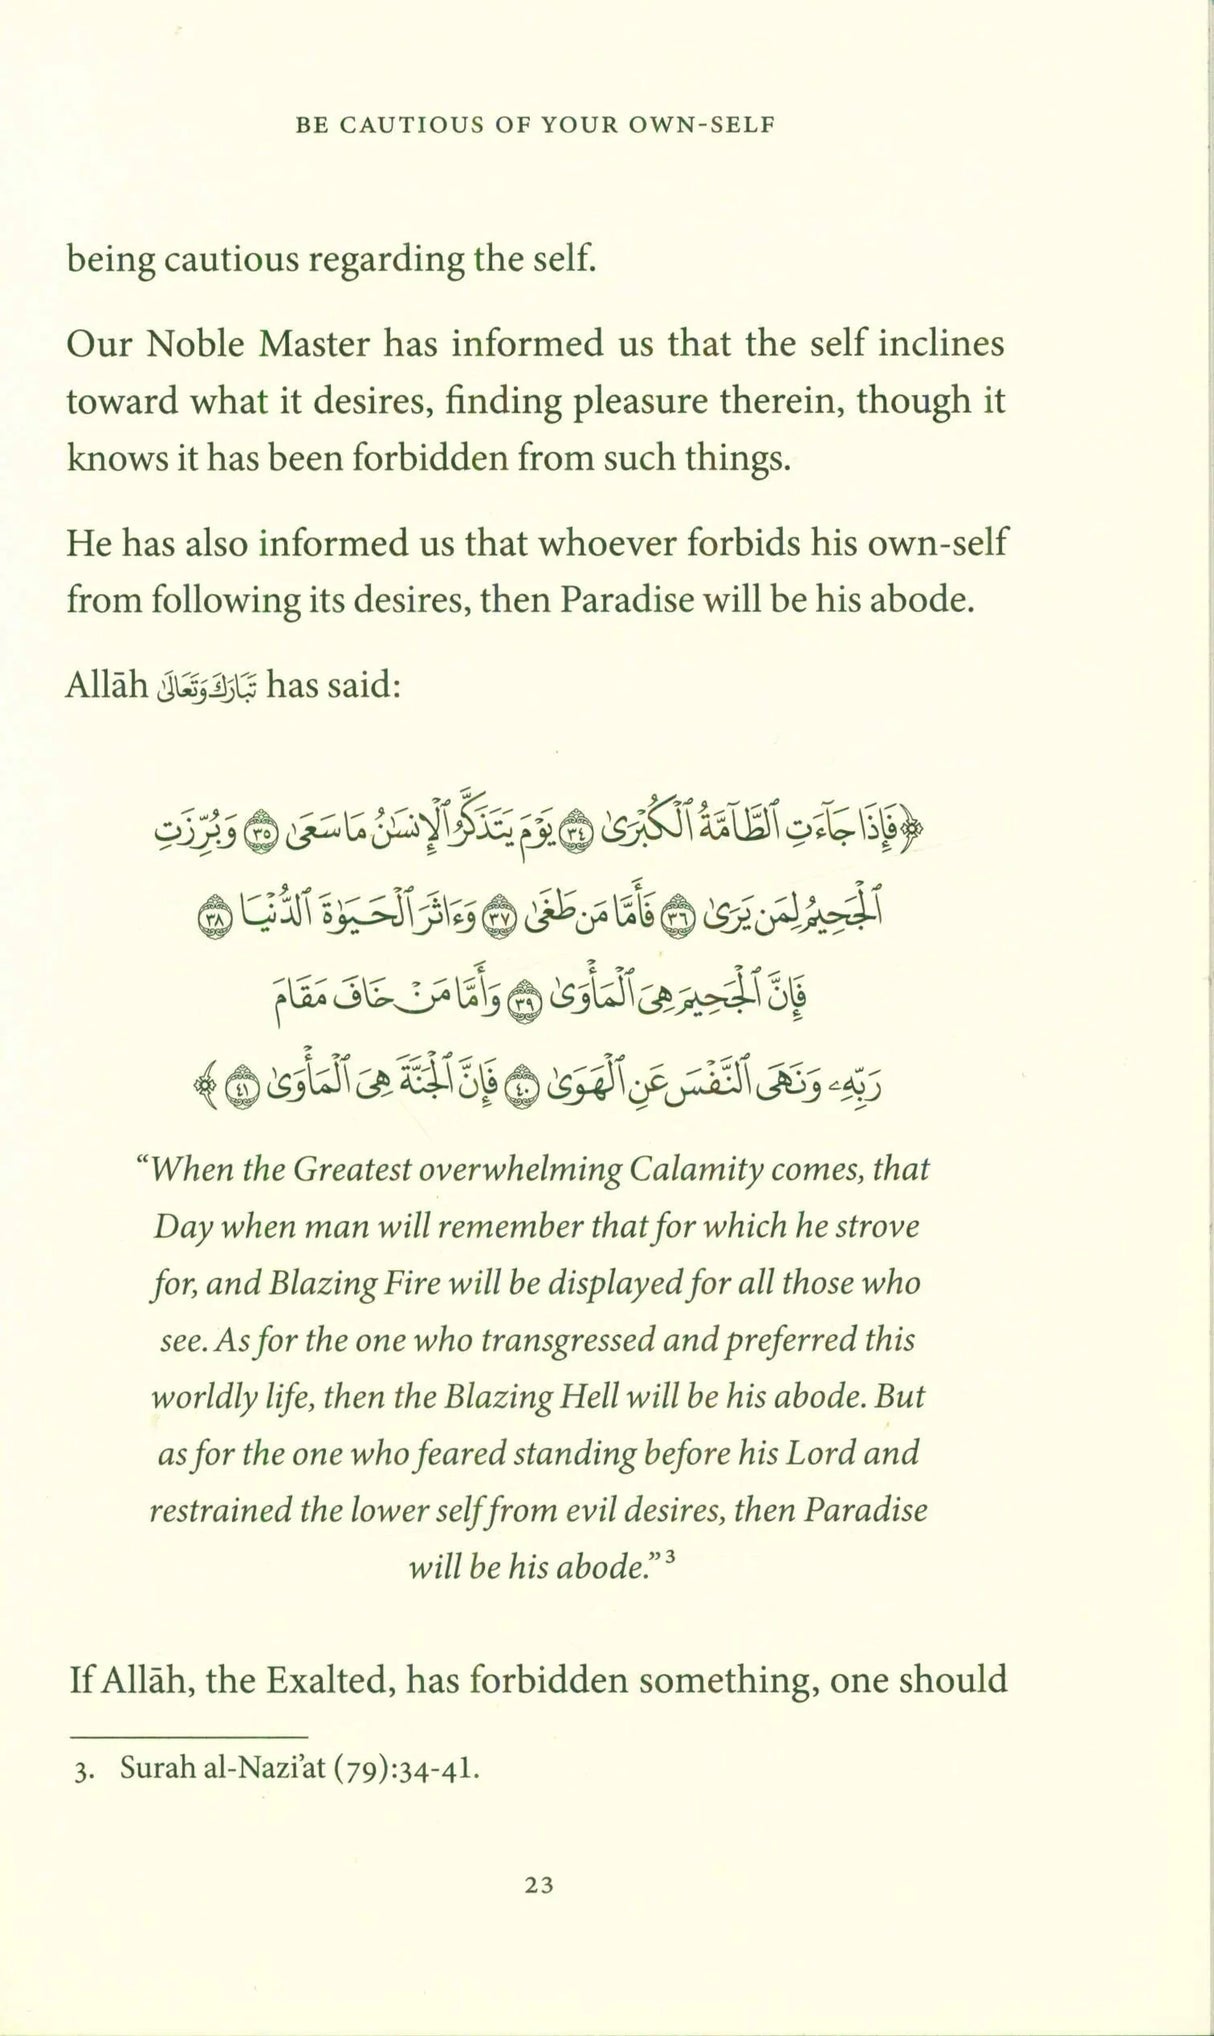 BE CAUTIOUS OF YOUR OWN-SELF
being cautious regarding the self.
Our Noble Master has informed us that the self inclines
toward what it desires, finding pleasure therein, though it
knows it has been forbidden from such things.
He has also informed us that whoever forbids his own-self
from following its desires, then Paradise will be his abode.
Allāh تَبَارَكَ وَتَعَالَىٰ has said:
﴿فَإِذَا جَآءَتِ ٱلطَّآمَّةُ ٱلْكُبْرَىٰ ٣٤ يَوْمَ يَتَذَكَّرُ ٱلْإِنسَٰنُ مَا سَعَىٰ ٣٥ وَبُرِّزَتِ
ٱلْجَحِيمُ لِمَن يَرَىٰ ٣٦ فَأَمَّا مَن طَغَىٰ ٣٧ وَءَاثَرَ ٱلْحَيَوٰةَ ٱلدُّنْيَا ٣٨
فَإِنَّ ٱلْجَحِيمَ هِىَ ٱلْمَأْوَىٰ ٣٩ وَأَمَّا مَنْ خَافَ مَقَامَ
رَبِّهِۦ وَنَهَى ٱلنَّفْسَ عَنِ ٱلْهَوَىٰ ٤٠ فَإِنَّ ٱلْجَنَّةَ هِىَ ٱلْمَأْوَىٰ ٤١﴾
“When the Greatest overwhelming Calamity comes, that
Day when man will remember that for which he strove
for, and Blazing Fire will be displayed for all those who
see. As for the one who transgressed and preferred this
worldly life, then the Blazing Hell will be his abode. But
as for the one who feared standing before his Lord and
restrained the lower self from evil desires, then Paradise
will be his abode.”³
If Allāh, the Exalted, has forbidden something, one should
3. Surah al-Nazi’at (79):34-41.
23